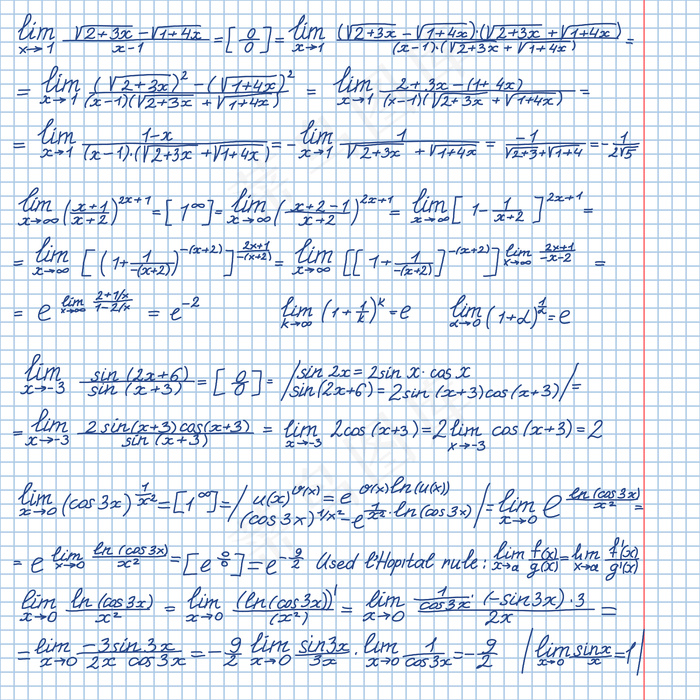 lim x→1 (√2+3x − √1+4x)/(x−1) = [0/0] = lim x→1 ((√2+3x − √1+4x)·(√2+3x + √1+4x))/((x−1)·(√2+3x + √1+4x)) =
= lim x→1 ((√2+3x)² − (√1+4x)²)/((x−1)(√2+3x + √1+4x)) = lim x→1 (2+3x−(1+4x))/((x−1)(√2+3x + √1+4x)) =
= lim x→1 (1−x)/((x−1)·(√2+3x + √1+4x)) = − lim x→1 1/(√2+3x + √1+4x) = −1/(√2+3 + √1+4) = −1/(2√5)
lim x→∞ ((x+1)/(x+2))^(2x+1) = [1^∞] = lim x→∞ ((x+2−1)/(x+2))^(2x+1) = lim x→∞ [1 − 1/(x+2)]^(2x+1) =
= lim x→∞ [(1 + 1/(−(x+2)))^(−(x+2))]^((2x+1)/(−(x+2))) = lim x→∞ [[1 + 1/(−(x+2))]^(−(x+2))]^(lim x→∞ (2x+1)/(−x−2)) =
= e^(lim x→∞ (2+1/x)/(1−2/x)) = e^(−2) lim k→∞ (1 + 1/k)^k = e lim α→0 (1+α)^(1/α) = e
lim x→−3 sin(2x+6)/sin(x+3) = [0/0] = / sin 2x = 2 sin x · cos x sin(2x+6) = 2 sin(x+3) cos(x+3) / =
= lim x→−3 (2 sin(x+3) cos(x+3))/(sin(x+3)) = lim x→−3 2cos(x+3) = 2 lim x→−3 cos(x+3) = 2
lim x→0 (cos 3x)^(1/x²) = [1^∞] = / u(x)^v(x) = e^(v(x) ln(u(x))) (cos 3x)^(1/x²) − e^(1/x² · ln(cos 3x)) / = lim x→0 e^(ln(cos 3x)/x²) =
= e^(lim x→0 ln(cos 3x)/x²) = [e^(0/0)] = e^(−9/2) Used l'Hopital rule: lim x→a f(x)/g(x) = lim x→a f'(x)/g'(x)
lim x→0 ln(cos 3x)/x² = lim x→0 (ln(cos 3x))'/(x²)' = lim x→0 (1/cos 3x · (−sin 3x)·3)/2x =
= lim x→0 (−3 sin 3x)/(2x cos 3x) = −9/2 lim x→0 sin 3x/3x · lim x→0 1/cos 3x = −9/2 | lim x→0 sin x/x = 1 |